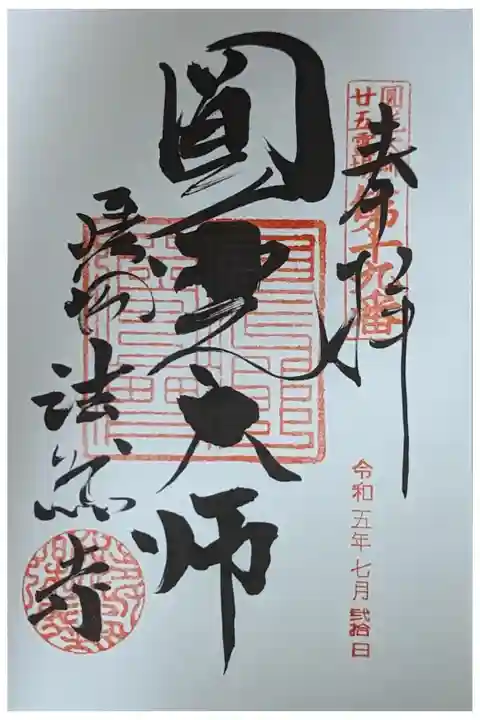 奉拝
圓光大師
廿五霊場
第十九番
令和五年七月弐拾日
圓光大師
法然寺